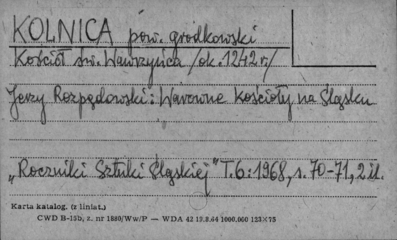 KOLNICA pow. grodkowski
Kościół św. Wawrzyńca /ok. 1242 r/
Jerzy Rozpędowski: Warowne kościoły na Śląsku
„Roczniki Sztuki Śląskiej" T.6:1968, s. 70-71, 2 il.
Karta katalog. (z liniat.)
CWD B-15b, z. nr 1880/Ww/P — WDA 42 12.8.64 1000.000 123×75